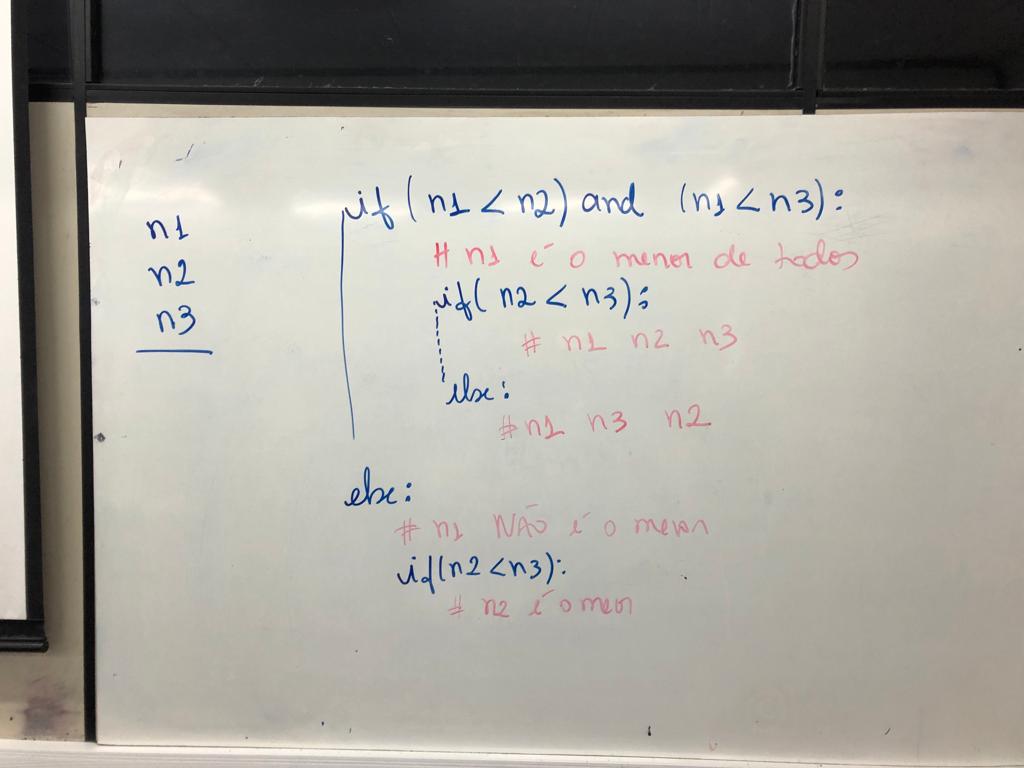 n1
n2
n3
if (n1 < n2) and (n1 < n3):
# n1 é o menor de todos
if( n2 < n3):
# n1 n2 n3
else:
#n1 n3 n2
else:
# n1 NÃO é o menor
if(n2 < n3):
# n2 é o menor